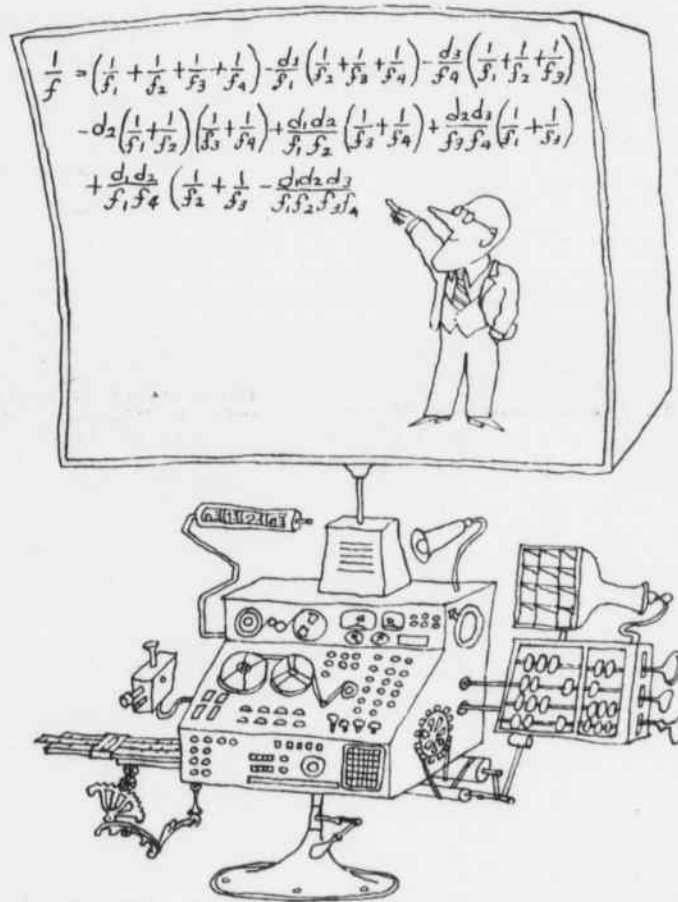 1/f = (1/f₁ + 1/f₂ + 1/f₃ + 1/f₄) - d₃/f₁ (1/f₂ + 1/f₃ + 1/f₄) - d₃/f₄ (1/f₁ + 1/f₂ + 1/f₃)
- d₂ (1/f₁ + 1/f₂) (1/f₃ + 1/f₄) + d₁d₂/f₁f₂ (1/f₃ + 1/f₄) + d₂d₃/f₃f₄ (1/f₁ + 1/f₃)
+ d₁d₂/f₁f₄ (1/f₂ + 1/f₃ - d₁d₂d₃/f₁f₂f₃f₄